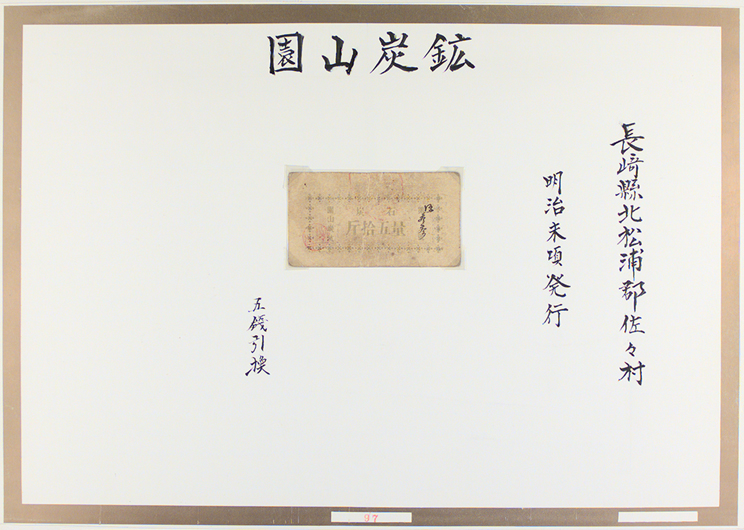 園山炭鉱
長崎縣北松浦郡佐々村
明治末項発行
石炭
量五拾斤
園山炭坑
五錢引換
97